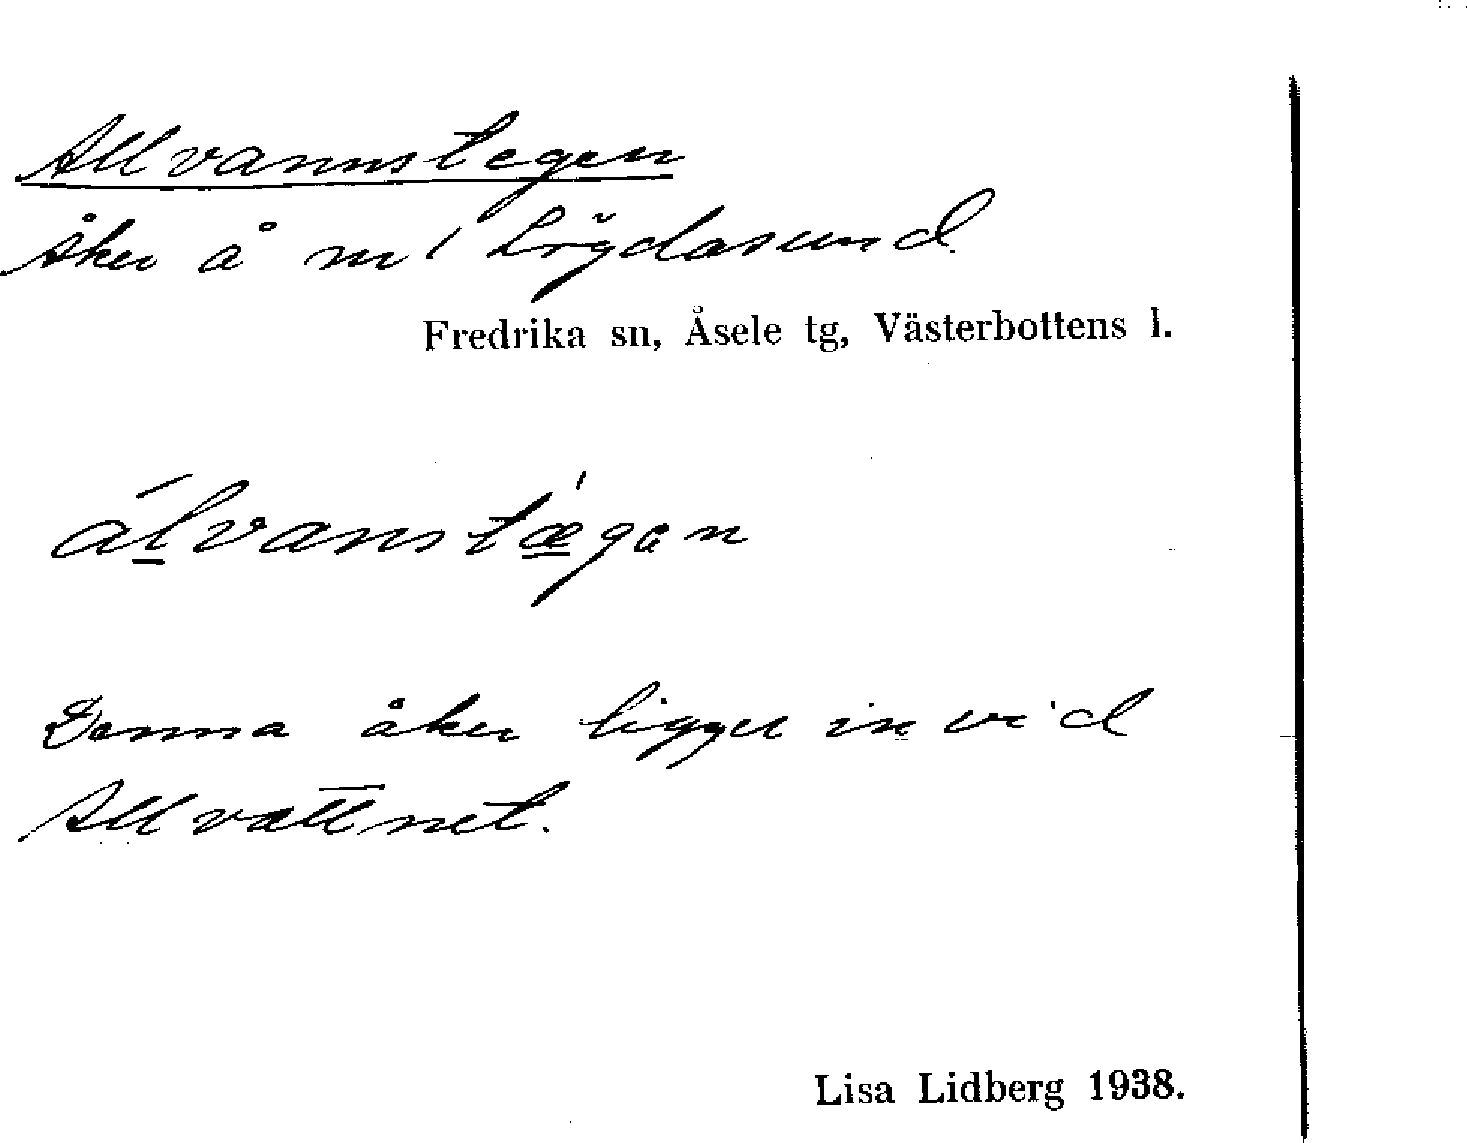 Allvannstegen
Åker å nr 1 Lögdasund
Fredrika sn, Åsele tg, Västerbottens l.
álvanstǽgan
Denna åker ligger in vid
Allvattnet.
Lisa Lidberg 1938.